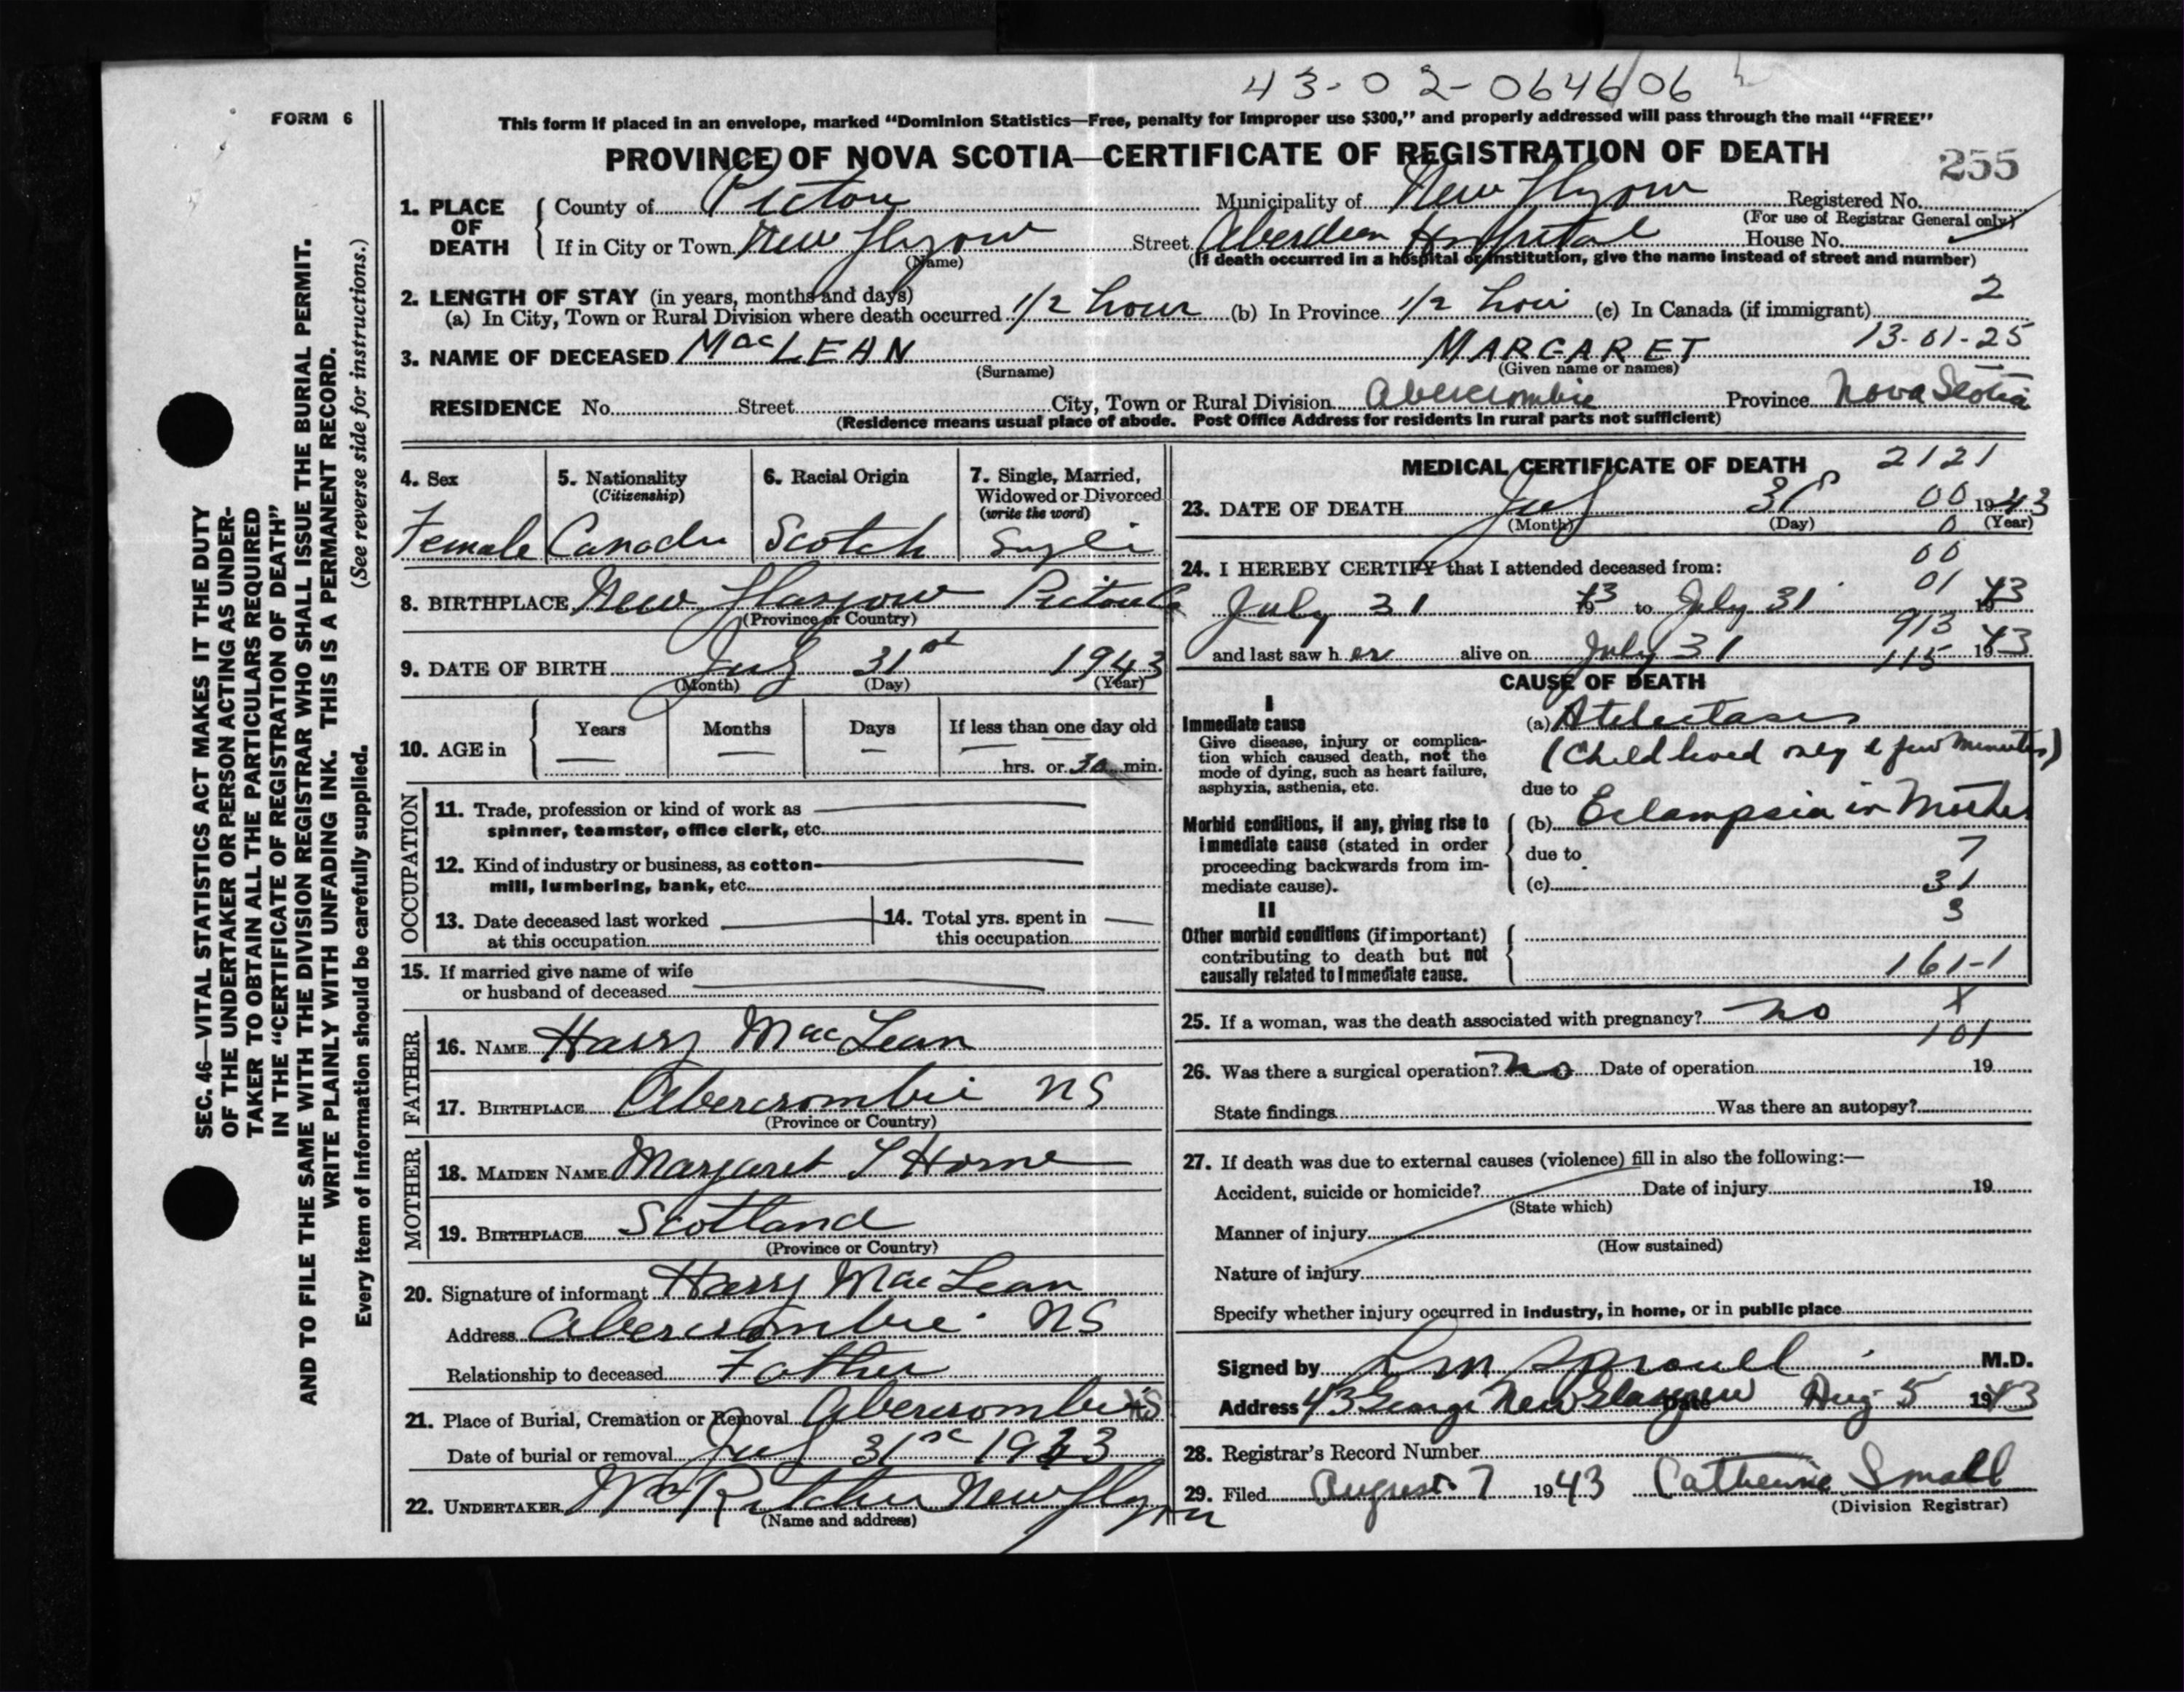 43-02-064606
FORM 6
This form if placed in an envelope, marked "Dominion Statistics—Free, penalty for improper use $300," and properly addressed will pass through the mail "FREE"
PROVINCE OF NOVA SCOTIA—CERTIFICATE OF REGISTRATION OF DEATH
255
1. PLACE OF DEATH { County of Pictou Municipality of New Glasgow Registered No.
(For use of Registrar General only)
If in City or Town New Glasgow Street Aberdeen Hospital House No.
(Name) (If death occurred in a hospital or institution, give the name instead of street and number)
2. LENGTH OF STAY (in years, months and days) 2
(a) In City, Town or Rural Division where death occurred 1/2 hour (b) In Province 1/2 hour (c) In Canada (if immigrant)
3. NAME OF DECEASED MacLEAN MARGARET 13-01-25
(Surname) (Given name or names)
RESIDENCE No. Street City, Town or Rural Division Abercrombie Province Nova Scotia
(Residence means usual place of abode. Post Office Address for residents in rural parts not sufficient)
4. Sex 5. Nationality (Citizenship) 6. Racial Origin 7. Single, Married, Widowed or Divorced (write the word)
Female Canada Scotch Single
8. BIRTHPLACE New Glasgow Pictou Co
(Province or Country)
9. DATE OF BIRTH July 31st 1943
(Month) (Day) (Year)
10. AGE in { Years Months Days If less than one day old
hrs. or 30 min.
OCCUPATION
11. Trade, profession or kind of work as
spinner, teamster, office clerk, etc.
12. Kind of industry or business, as cotton-
mill, lumbering, bank, etc.
13. Date deceased last worked
at this occupation
14. Total yrs. spent in
this occupation
15. If married give name of wife
or husband of deceased
FATHER
16. NAME Harry MacLean
17. BIRTHPLACE Abercrombie NS
(Province or Country)
MOTHER
18. MAIDEN NAME Margaret Horne
19. BIRTHPLACE Scotland
(Province or Country)
20. Signature of informant Harry MacLean
Address Abercrombie NS
Relationship to deceased Father
21. Place of Burial, Cremation or Removal Abercrombie NS
Date of burial or removal July 31st 1943
22. UNDERTAKER New Glasgow
(Name and address)
MEDICAL CERTIFICATE OF DEATH 2121
23. DATE OF DEATH July 31 00 1943
(Month) (Day) 0 (Year)
00
24. I HEREBY CERTIFY that I attended deceased from:
01
July 31 1943 to July 31 1943
913
and last saw her alive on July 31 1943
115
CAUSE OF DEATH
I
Immediate cause
Give disease, injury or complica-
tion which caused death, not the
mode of dying, such as heart failure,
asphyxia, asthenia, etc.
(a) Atelectasis
(Child lived only a few minutes)
due to
Morbid conditions, if any, giving rise to
immediate cause (stated in order
proceeding backwards from im-
mediate cause).
(b) Eclampsia in Mother
due to 7
(c) 31
3
II
Other morbid conditions (if important)
contributing to death but not
causally related to immediate cause.
161-1
25. If a woman, was the death associated with pregnancy? no X
101
26. Was there a surgical operation? no Date of operation 19
State findings Was there an autopsy?
27. If death was due to external causes (violence) fill in also the following:—
Accident, suicide or homicide? Date of injury 19
(State which)
Manner of injury
(How sustained)
Nature of injury
Specify whether injury occurred in industry, in home, or in public place
Signed by Sproull M.D.
Address 43 George New Glasgow Date Aug 5 1943
28. Registrar's Record Number
29. Filed August 7 1943 Catherine Small
(Division Registrar)
SEC. 46—VITAL STATISTICS ACT MAKES IT THE DUTY
OF THE UNDERTAKER OR PERSON ACTING AS UNDER-
TAKER TO OBTAIN ALL THE PARTICULARS REQUIRED
IN THE "CERTIFICATE OF REGISTRATION OF DEATH"
AND TO FILE THE SAME WITH THE DIVISION REGISTRAR WHO SHALL ISSUE THE BURIAL PERMIT.
WRITE PLAINLY WITH UNFADING INK. THIS IS A PERMANENT RECORD.
Every item of information should be carefully supplied. (See reverse side for instructions.)